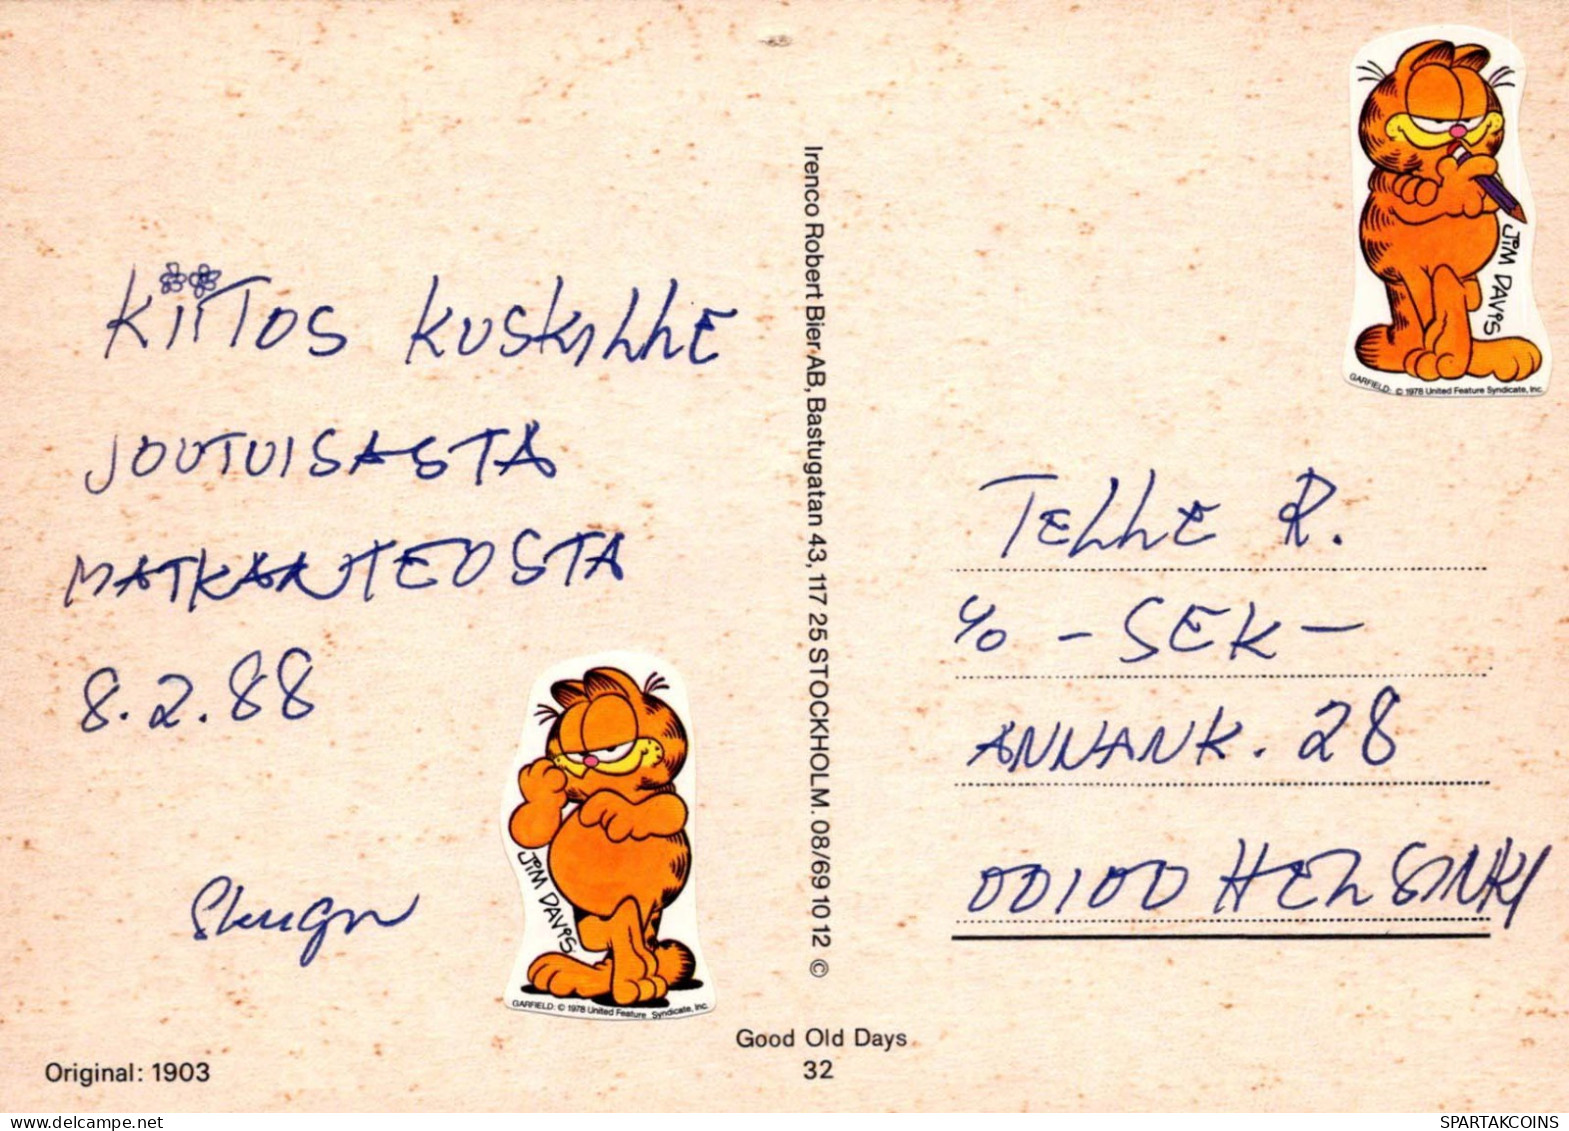 KIITOS KUSKILLE
JOUTUISASTA
MATKANTEOSTA
8.2.88
JIM DAVIS
GARFIELD: © 1978 United Feature Syndicate, Inc.
Original: 1903
Irenco Robert Bier AB, Bastugatan 43, 117 25 STOCKHOLM. 08/69 10 12 ©
Good Old Days
32
JIM DAVIS
GARFIELD: © 1978 United Feature Syndicate, Inc.
TELLE R.
c/o - SEK -
ANNANK. 28
00100 HELSINKI
delcampe.net
SPARTAKCOINS